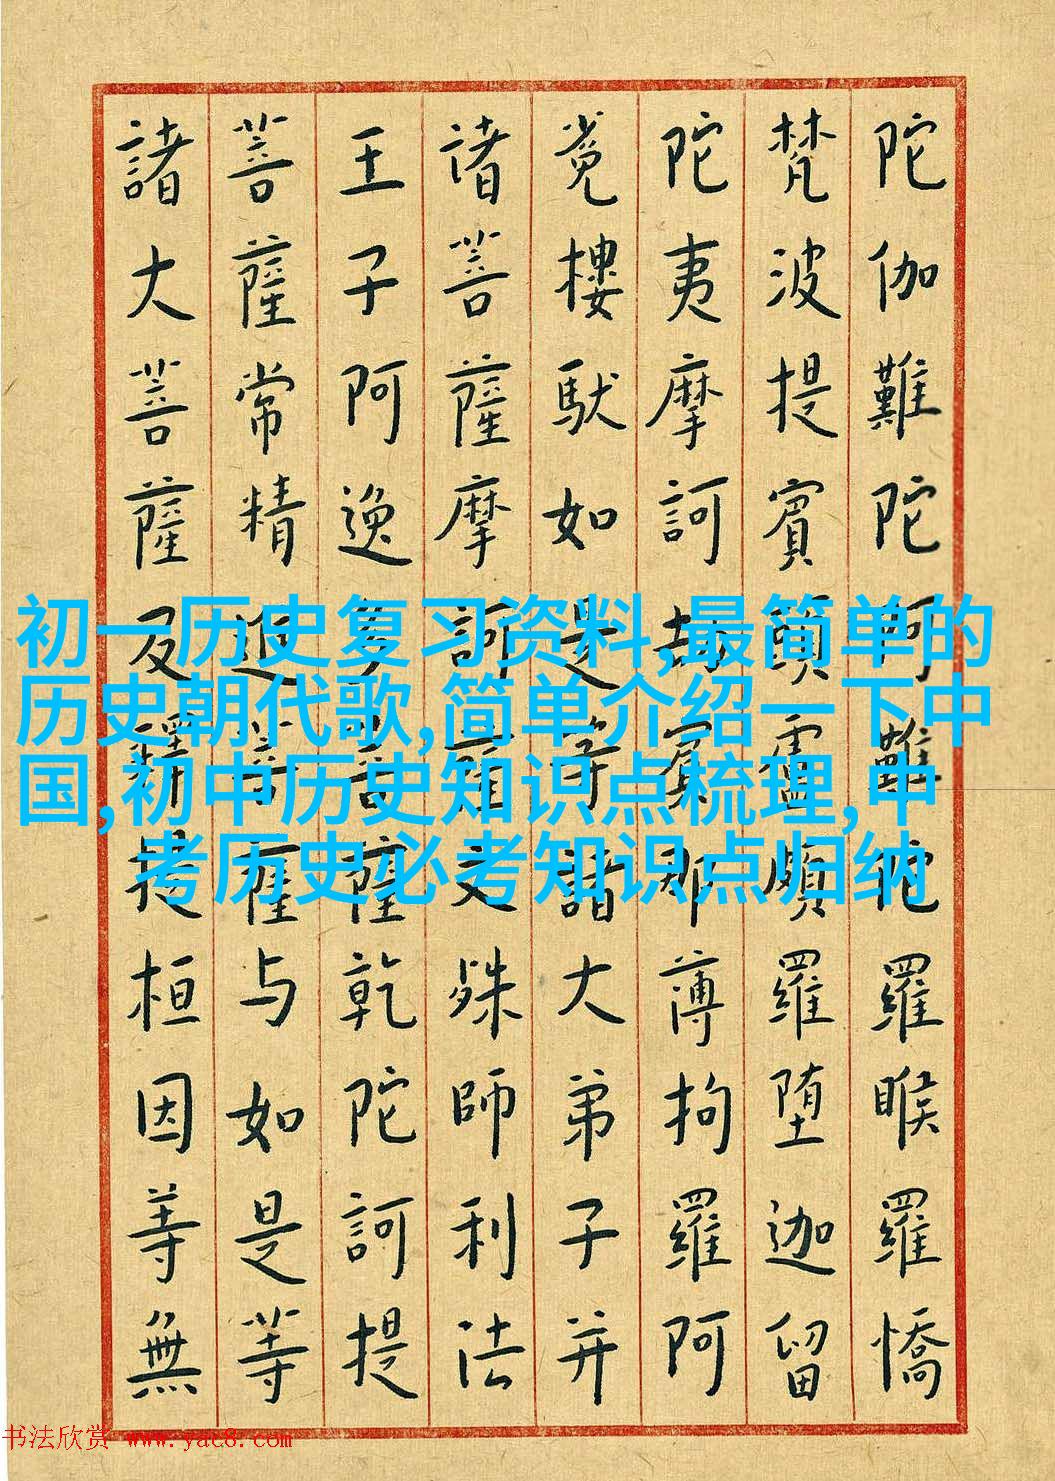 陀伽難陀阿難陀羅睺羅憍
梵波提賓頭盧頗羅堕迦留
陀夷摩訶劫賓那薄拘羅阿
樓馱如是等諸大弟子并
诸菩薩摩訶薩文殊師利法
王子阿逸多菩薩乾陀訶提
菩薩常精進菩薩与如是等
諸大菩薩及釋提桓因等無
初一历史复习资料,最简单的
历史朝代歌,简单介绍一下中
国,初中历史知识点梳理,中
考历史必考知识点归纳
书法欣赏 www.yac8.com